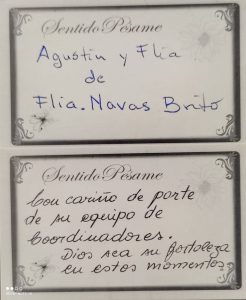 Sentido Pésame
Agustin y Flia
de
Flia. Navas Brito
Sentido Pésame
Con cariño de parte
de su equipo de
Coordinadores.
Dios sea su fortaleza
en estos momentos